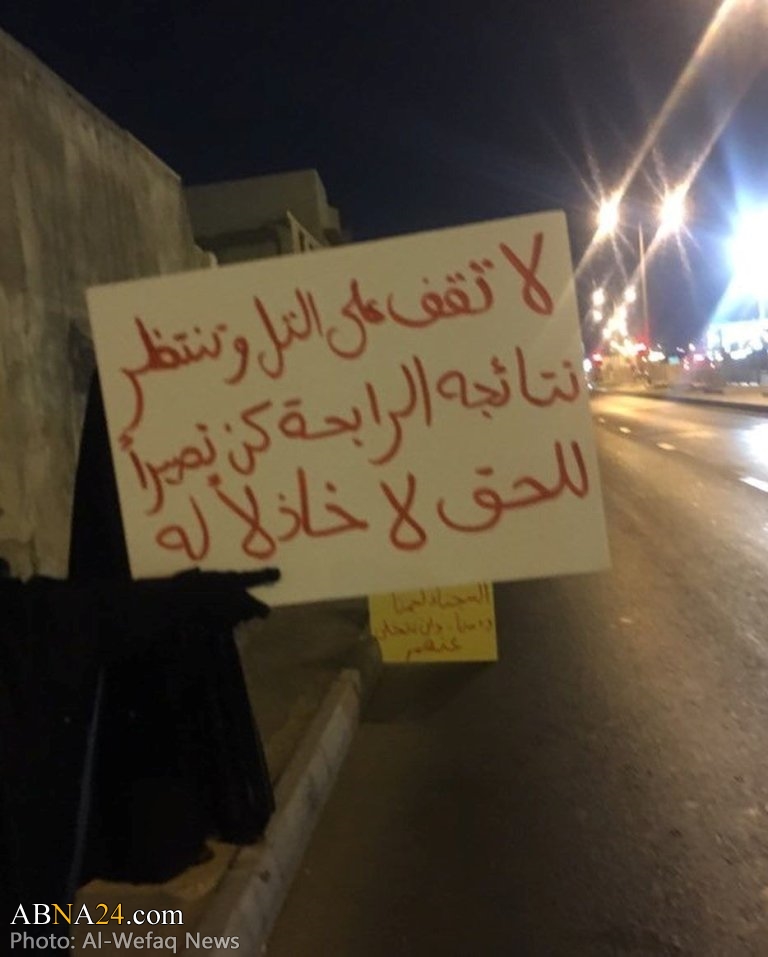 لا تقف على التل وتنتظر
نتائجه الرابحة كن نصيراً
للحق لا خاذلاً له
عنهم
ABNA24.com
Photo: Al-Wefaq News